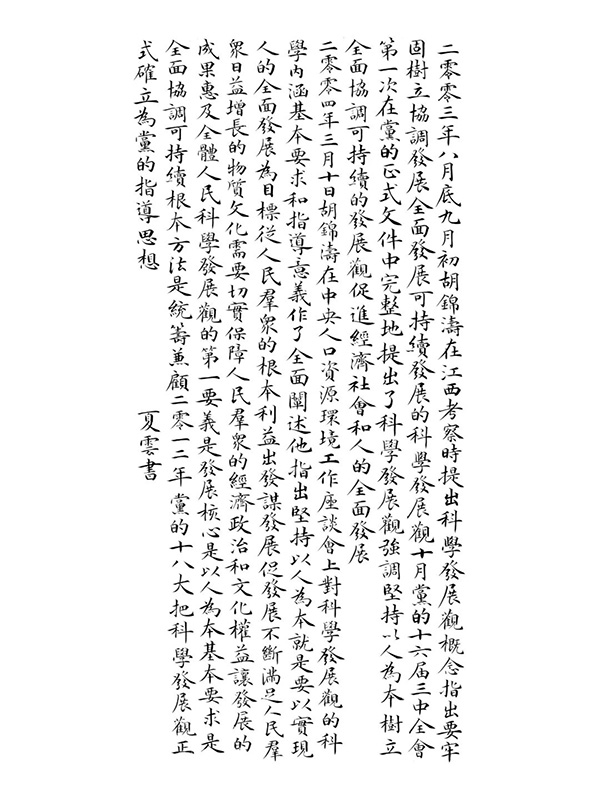 二零零三年八月底九月初胡錦濤在江西考察時提出科學發展觀概念指出要牢
固樹立協調發展全面發展可持續發展的科學發展觀十月黨的十六届三中全會
第一次在黨的正式文件中完整地提出了科學發展觀強調堅持以人為本樹立
全面協調可持續的發展觀促進經濟社會和人的全面發展
二零零四年三月十日胡錦濤在中央人口資源環境工作座談會上對科學發展觀的科
學內涵基本要求和指導意義作了全面闡述他指出堅持以人為本就是要以實現
人的全面發展為目標從人民羣衆的根本利益出發謀發展促發展不斷滿足人民羣
衆日益增長的物質文化需要切實保障人民羣衆的經濟政治和文化權益讓發展的
成果惠及全體人民科學發展觀的第一要義是發展核心是以人為本基本要求是
全面協調可持續根本方法是統籌兼顧二零一二年黨的十八大把科學發展觀正
式確立為黨的指導思想
夏雲書